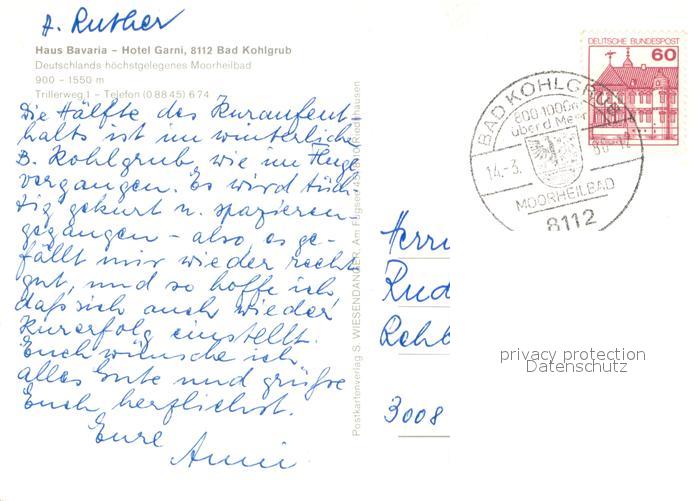 A. Ruther
Haus Bavaria – Hotel Garni, 8112 Bad Kohlgrub
Deutschlands höchstgelegenes Moorheilbad
900 – 1550 m
Trillerweg 1 – Telefon (0 88 45) 6 74
Die Hälfte des Kuraufent-
halts ist im winterlichen
B. Kohlgrub wie im Fluge
vergangen. Es wird tüch-
tig gekurt u. spazieren-
gegangen – also, es ge-
fällt mir wieder recht
gut, und so hoffe ich,
daß sich auch wieder
Kurerfolg einstellt.
Euch wünsche ich
alles Gute und grüße
Euch herzlichst.
Eure
Anni
Postkartenverlag S. WIESENDANGER, Am Flugsee
DEUTSCHE BUNDESPOST
60
BAD KOHLGRUB
über d Meer
14.-3.
MOORHEILBAD
8112
Herrn
Rud
Rehb
3008
privacy protection
Datenschutz